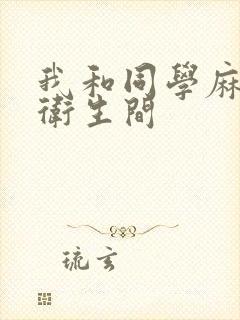 我和同學麻
衛生間
琉玄